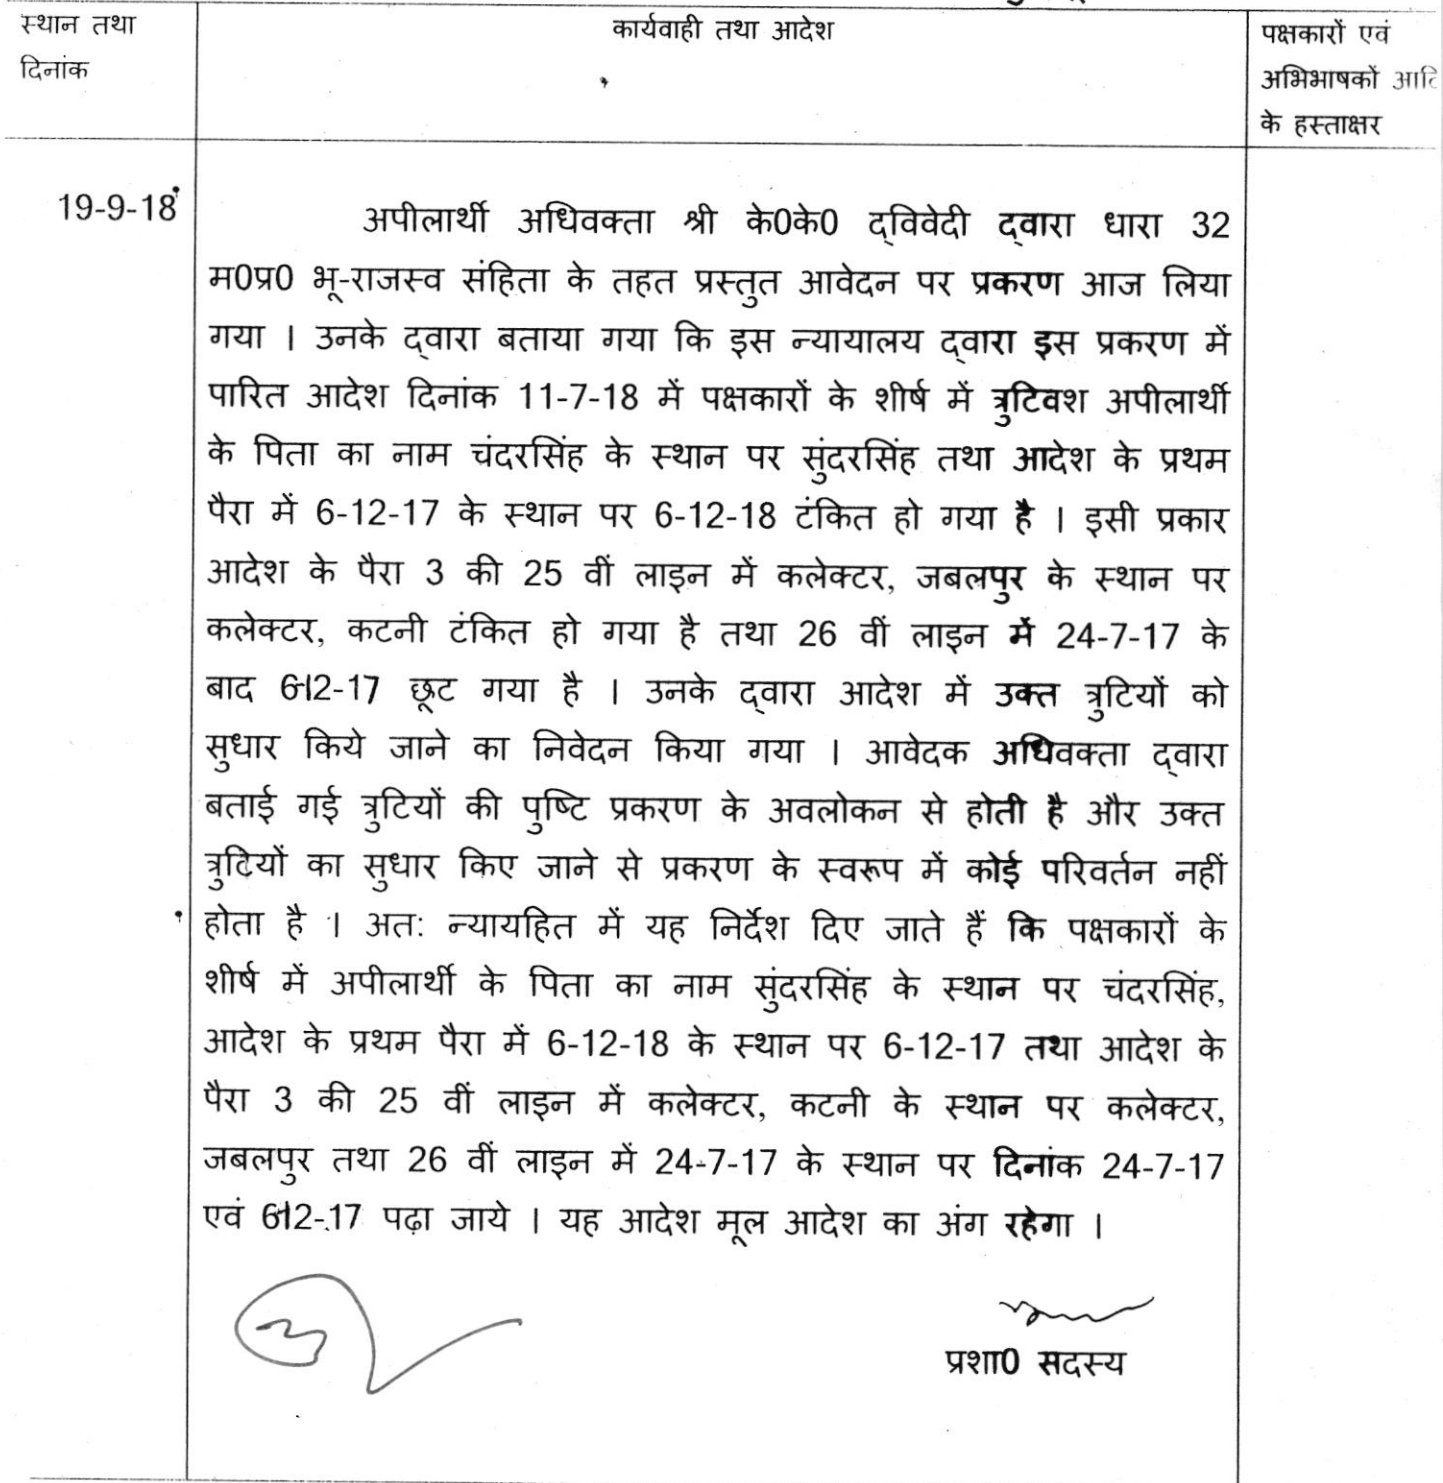 स्थान तथा
दिनांक
कार्यवाही तथा आदेश
पक्षकारों एवं
अभिभाषकों आदि
के हस्ताक्षर
19-9-18
अपीलार्थी अधिवक्ता श्री के0के0 द्विवेदी द्वारा धारा 32
म0प्र0 भू-राजस्व संहिता के तहत प्रस्तुत आवेदन पर प्रकरण आज लिया
गया । उनके द्वारा बताया गया कि इस न्यायालय द्वारा इस प्रकरण में
पारित आदेश दिनांक 11-7-18 में पक्षकारों के शीर्ष में त्रुटिवश अपीलार्थी
के पिता का नाम चंदरसिंह के स्थान पर सुंदरसिंह तथा आदेश के प्रथम
पैरा में 6-12-17 के स्थान पर 6-12-18 टंकित हो गया है । इसी प्रकार
आदेश के पैरा 3 की 25 वीं लाइन में कलेक्टर, जबलपुर के स्थान पर
कलेक्टर, कटनी टंकित हो गया है तथा 26 वीं लाइन में 24-7-17 के
बाद 6-12-17 छूट गया है । उनके द्वारा आदेश में उक्त त्रुटियों को
सुधार किये जाने का निवेदन किया गया । आवेदक अधिवक्ता द्वारा
बताई गई त्रुटियों की पुष्टि प्रकरण के अवलोकन से होती है और उक्त
त्रुटियों का सुधार किए जाने से प्रकरण के स्वरूप में कोई परिवर्तन नहीं
होता है । अतः न्यायहित में यह निर्देश दिए जाते हैं कि पक्षकारों के
शीर्ष में अपीलार्थी के पिता का नाम सुंदरसिंह के स्थान पर चंदरसिंह,
आदेश के प्रथम पैरा में 6-12-18 के स्थान पर 6-12-17 तथा आदेश के
पैरा 3 की 25 वीं लाइन में कलेक्टर, कटनी के स्थान पर कलेक्टर,
जबलपुर तथा 26 वीं लाइन में 24-7-17 के स्थान पर दिनांक 24-7-17
एवं 6-12-17 पढ़ा जाये । यह आदेश मूल आदेश का अंग रहेगा ।
प्रशा0 सदस्य